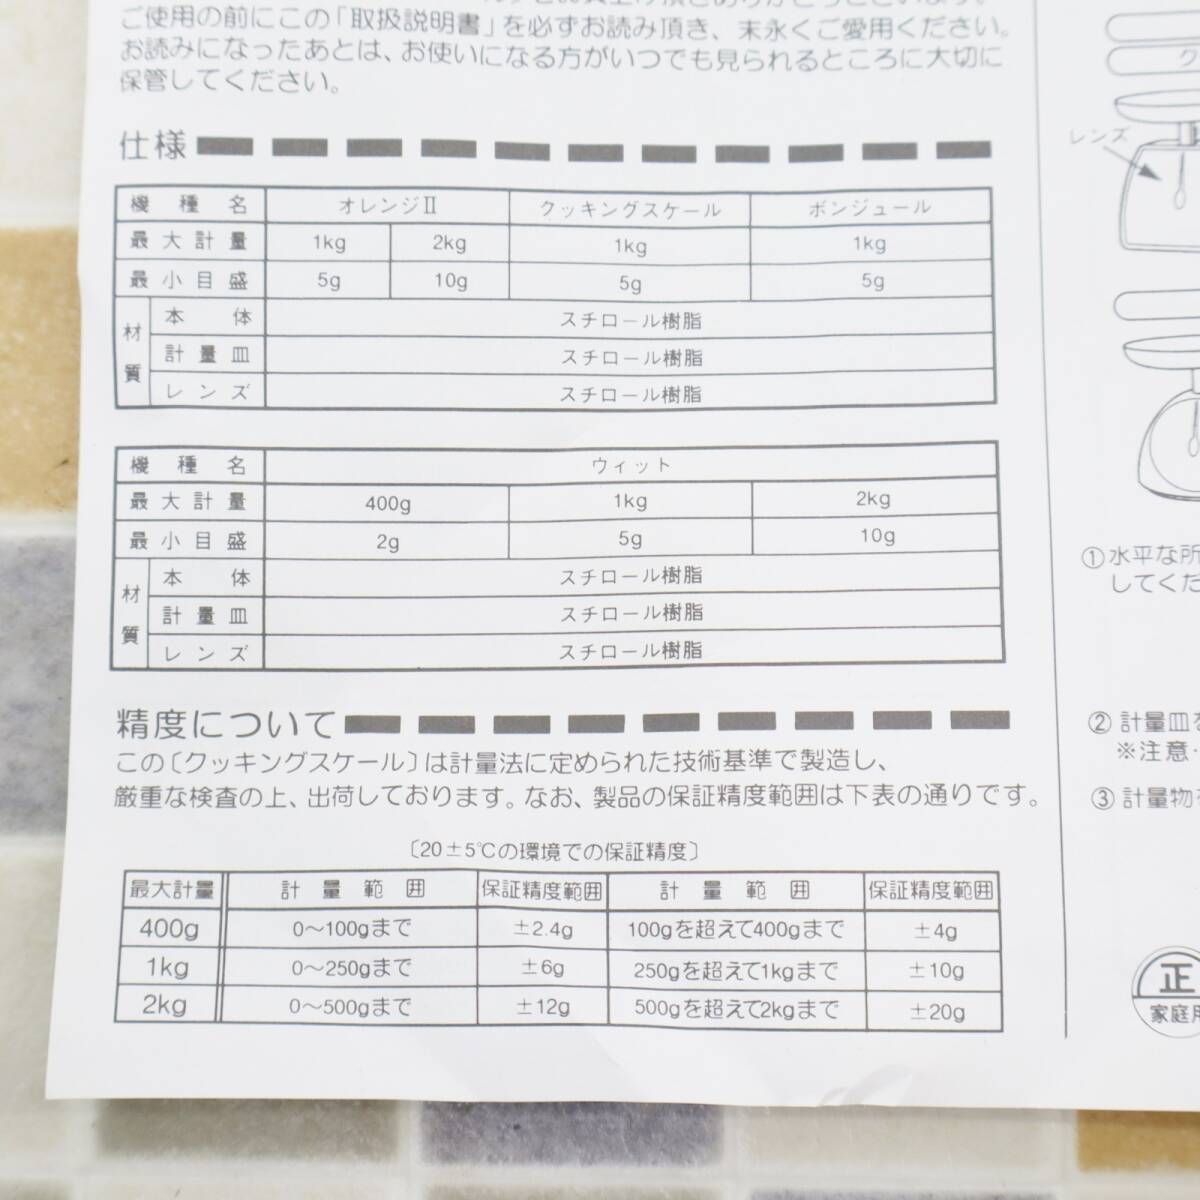 ご使用の前にこの「取扱説明書」を必ずお読み頂き、末永くご愛用ください。
お読みになったあとは、お使いになる方がいつでも見られるところに大切に
保管してください。
仕様
機種名 オレンジⅡ クッキングスケール ボンジュール
最大計量 1kg 2kg 1kg 1kg
最小目盛 5g 10g 5g 5g
材質 本体 スチロール樹脂
計量皿 スチロール樹脂
レンズ スチロール樹脂
機種名 ウィット
最大計量 400g 1kg 2kg
最小目盛 2g 5g 10g
材質 本体 スチロール樹脂
計量皿 スチロール樹脂
レンズ スチロール樹脂
精度について
この〔クッキングスケール〕は計量法に定められた技術基準で製造し、
厳重な検査の上、出荷しております。なお、製品の保証精度範囲は下表の通りです。
〔20±5℃の環境での保証精度〕
最大計量 計量範囲 保証精度範囲 計量範囲 保証精度範囲
400g 0〜100gまで ±2.4g 100gを超えて400gまで ±4g
1kg 0〜250gまで ±6g 250gを超えて1kgまで ±10g
2kg 0〜500gまで ±12g 500gを超えて2kgまで ±20g
ク
レンズ
①水平な所
してくだ
②計量皿を
※注意・
③計量物を
正
家庭用